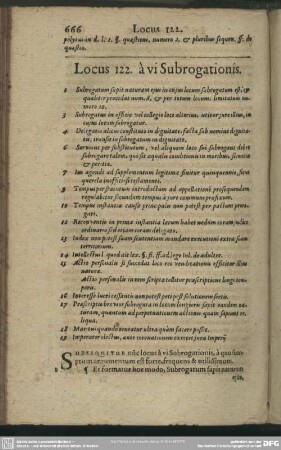 666 Locus 122.
polytus in d. l. 1. §. quæstioni, numero 2. & pluribus sequen. ff. de
quæstio.
Locus 122. à vi Subrogationis.
1 Subrogatum sapit naturam eius in cuius locum subrogatum est, &
qualiter procedat num. 8. & per totum locum. limitatur
numero 10.
3 Subrogatus in officio vel collegio loco alterius, utitur privilegio,
in cuius locum subrogatur.
4 Delegatio alicui constituto in dignitate, facta sub nomine dignita-
tis, transit in subrogatum in dignitate.
6 Servitores per substitutum, vel aliquem loco sui subrogans debet
subrogare talem, qui sit æqualis conditionis in moribus, scientia
& peritia.
7 Ius agendi ad supplementum legitimæ finitur quinquennio, sicut
querela inofficiosi testamenti.
9 Tempus per statutum introductum ad appellationem prosequendam
regulabitur secundum tempus à iure communi præfixum.
10 Tempus instantiæ causæ
12 Reconventio in prima instantia locum habet
ordinario sed etiam coram delegato.
13 Iudex non potest suam sententiam mandare executioni extra suum
territorium.
14 Intellectus l. quod ait lex. §. fi. ff. ad leg. iul. de adulter.
15 Actio personalis si succedat loco rei vendicationis
natura.
Actio personalis in rem scripta tollitur præscriptione longi tem-
poris.
16 Interesse lucri cessantis
17 Præscriptio brevior subrogata in locum longioris sapit eandem na-
turam, quantum ad perpetuationem actionis quam sapiunt re-
liqua.
18 Maritus quando teneatur ultra quàm facere possit.
19 Imperator electus, ante coronationem exercet iura Imperij
SUBSEQUITUR nũc locus à vi Subrogationis, à quo sum-
ptum argumentum est forte, frequens & utilissimum.
1 ¶ Et formatur hoc modo, Subrogatum sapit naturam
eius,